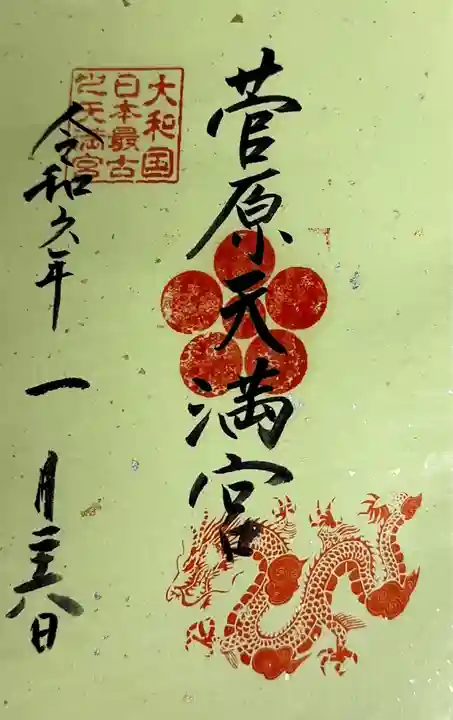 菅原天満宮
大和国
日本最古
之天満宮
令和六年 一月二十八日